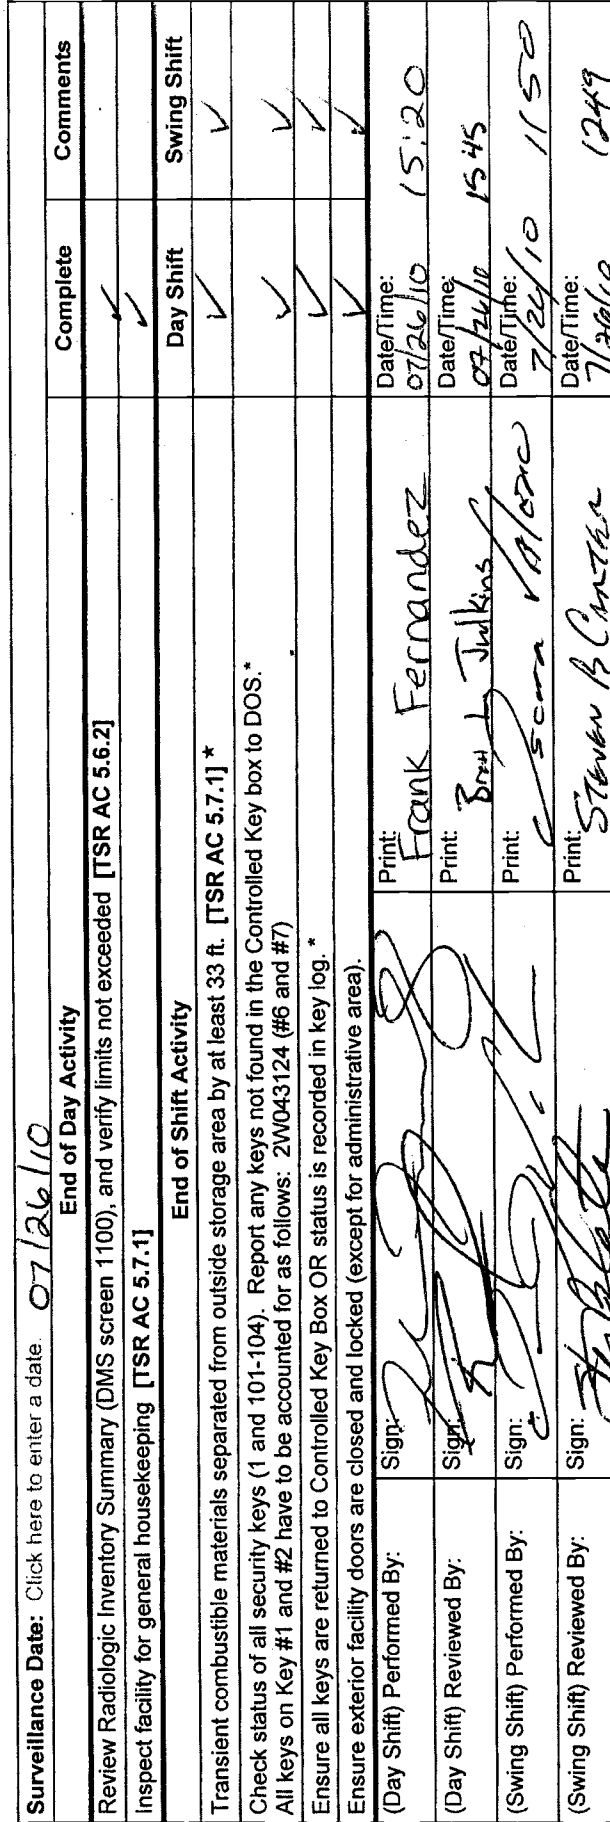 Surveillance Date: Click here to enter a date. 07/26/10
End of Day Activity Complete Comments
Review Radiologic Inventory Summary (DMS screen 1100), and verify limits not exceeded [TSR AC 5.6.2] ✓
Inspect facility for general housekeeping [TSR AC 5.7.1] ✓
End of Shift Activity Day Shift Swing Shift
Transient combustible materials separated from outside storage area by at least 33 ft. [TSR AC 5.7.1] * ✓ ✓
Check status of all security keys (1 and 101-104). Report any keys not found in the Controlled Key box to DOS.*
All keys on Key #1 and #2 have to be accounted for as follows: 2W043124 (#6 and #7) ✓ ✓
Ensure all keys are returned to Controlled Key Box OR status is recorded in key log. * ✓ ✓
Ensure exterior facility doors are closed and locked (except for administrative area). ✓ ✓
(Day Shift) Performed By: Sign: Print: Frank Fernandez Date/Time: 07/26/10 15:20
(Day Shift) Reviewed By: Sign: Print: Judkins Date/Time: 07/26/10 1545
(Swing Shift) Performed By: Sign: Print: Date/Time: 7/26/10 1150
(Swing Shift) Reviewed By: Sign: Print: Steven B Date/Time: 7/26/10 1249